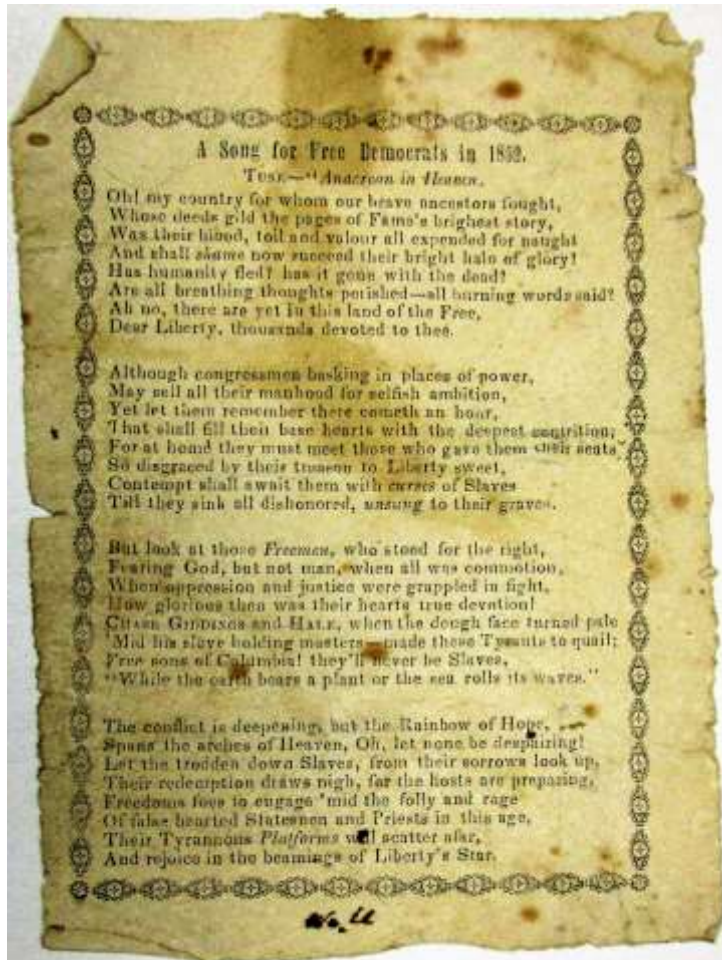 A Song for Free Democrats in 1852.
Tune.—"Anacreon in Heaven.
Oh! my country for whom our brave ancestors fought,
Whose deeds gild the pages of Fame's brighest story,
Was their blood, toil and valour all expended for naught
And shall shame now succeed their bright halo of glory!
Has humanity fled? has it gone with the dead?
Are all breathing thoughts perished—all burning words said?
Ah no, there are yet in this land of the Free,
Dear Liberty, thousands devoted to thee.
Although congressmen basking in places of power,
May sell all their manhood for selfish ambition,
Yet let them remember there cometh an hour,
That shall fill their base hearts with the deepest contrition;
For at home they must meet those who gave them their seats,
So disgraced by their treason to Liberty sweet,
Contempt shall await them with curses of Slaves
Till they sink all dishonored, unsung to their graves.
But look at those Freemen, who stood for the right,
Fearing God, but not man, when all was commotion,
When oppression and justice were grappled in fight,
How glorious then was their hearts true devotion!
Chase Giddings and Hale, when the dough face turned pale
'Mid his slave holding masters—made these Tyrants to quail;
Free sons of Columbia! they'll never be Slaves,
"While the earth bears a plant or the sea rolls its waves."
The conflict is deepening, but the Rainbow of Hope,
Spans the arches of Heaven, Oh, let none be despairing!
Let the trodden down Slaves, from their sorrows look up,
Their redemption draws nigh, for the hosts are preparing,
Freedoms foes to engage 'mid the folly and rage
Of false hearted Statesmen and Priests in this age,
Their Tyrannous Platforms will scatter afar,
And rejoice in the beamings of Liberty's Star.